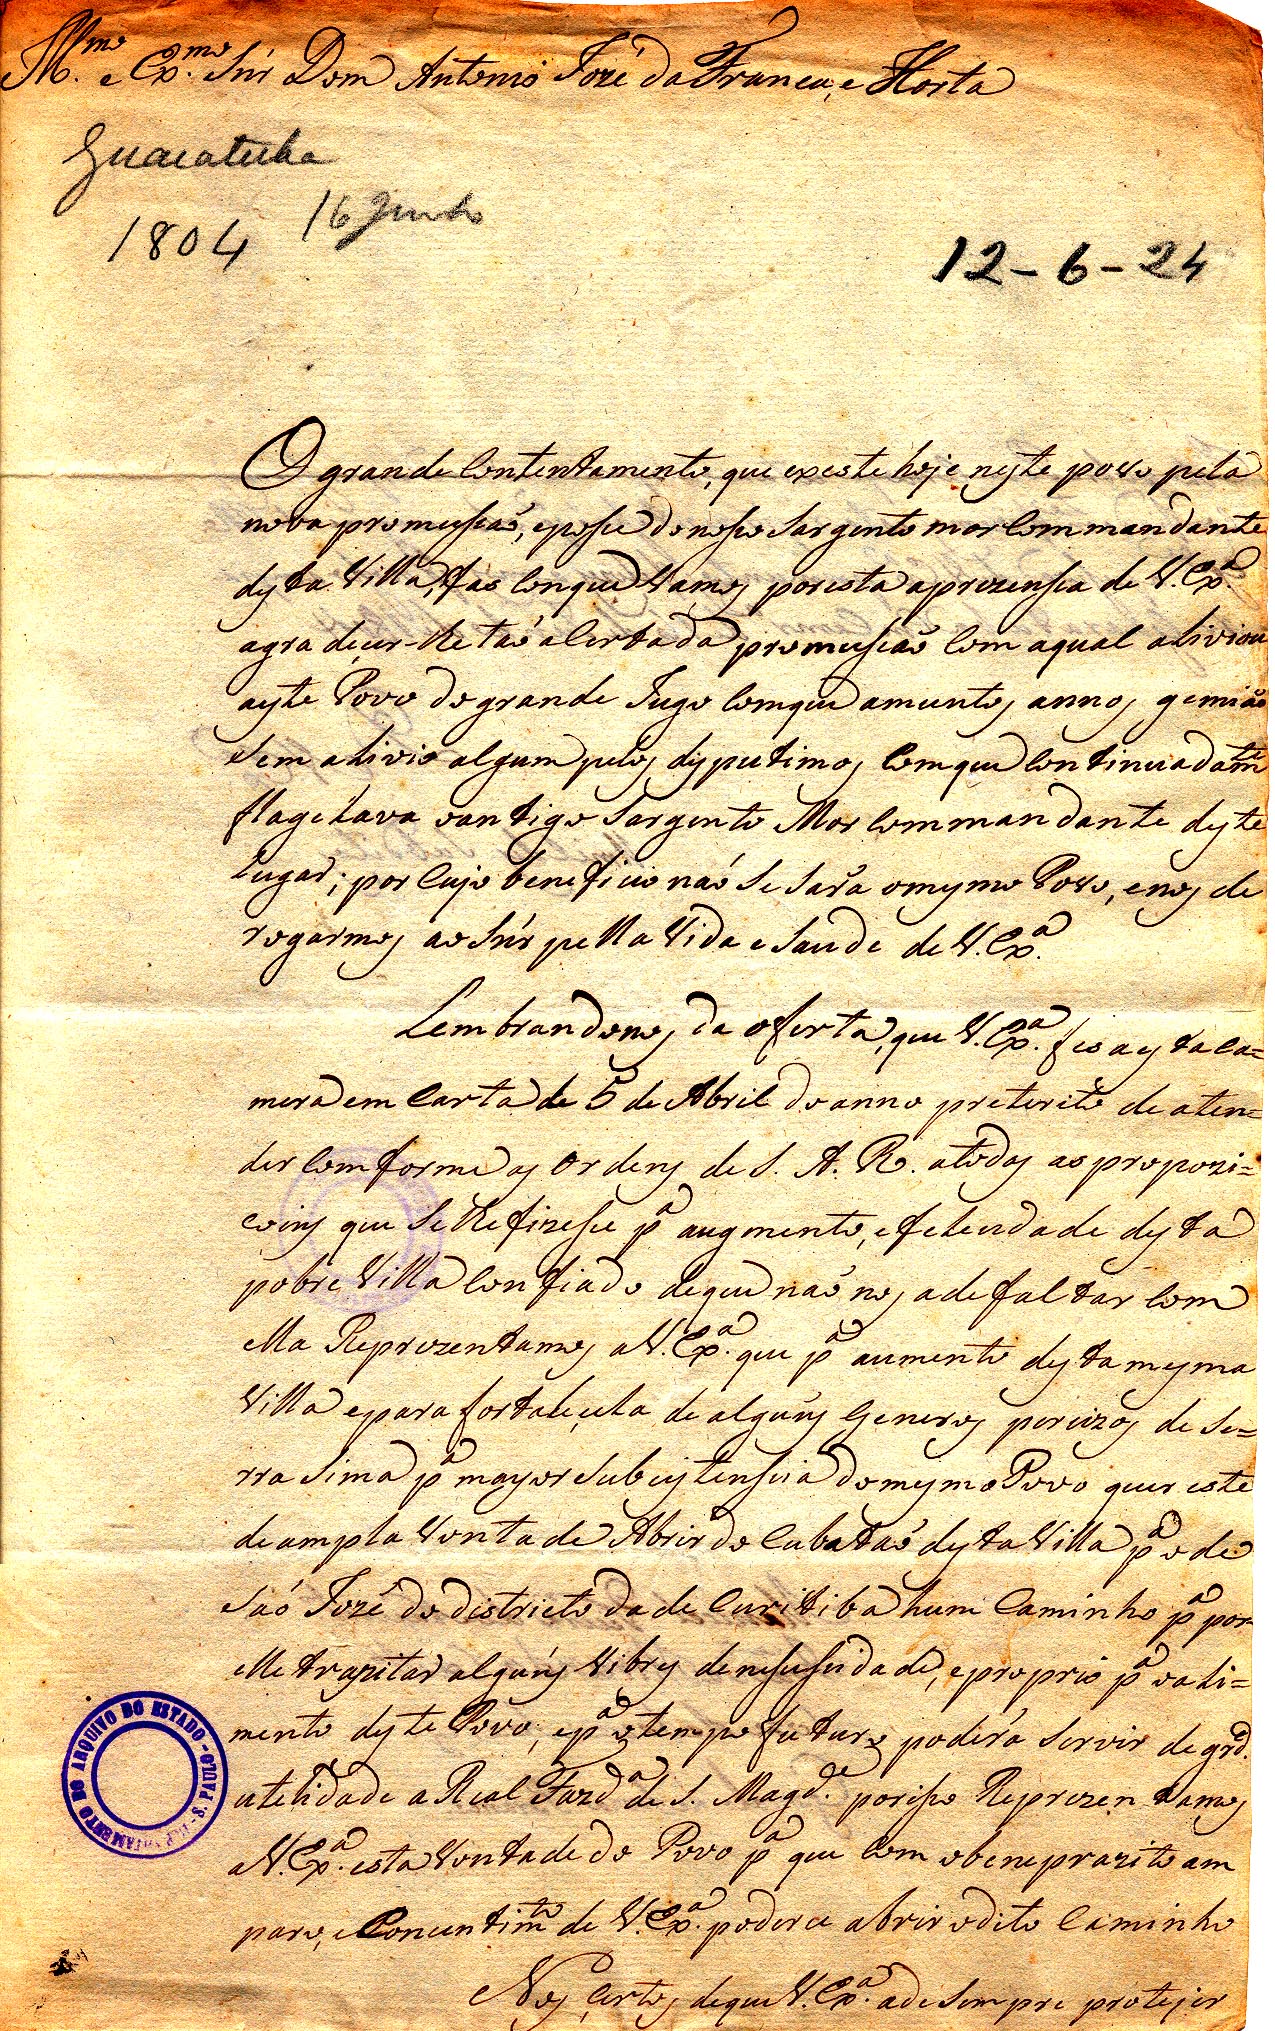 Ill.mo e Ex.mo Snr Dom Antonio Jozé da Franca, e Horta
Guaratuba
1804 16 Junho
12-6-24
O grande Contentamento, que exeste hoje neste povo pela
nova promusiaõ, eposse donosso Sargento mor Commandante
desta Villa, fas Comque Vamos poresta aprezensia de V. Ex.ª
agradecer-lhe taõ alertada promusiaõ Com aqual aliviou
aeste Povo do grande Jugo Comque amuntos annos gemiaõ
sem alivio algum pelos desputimos Comque Continuadam.te
flagelava oantigo Sargento Mor Commandante deste
Lugar; por Cujo beneficio naõ Sesára omesmo Povo, enos de
rogarmos ao Snr pella Vida e Saude de V. Ex.ª
Lembrandonos da oferta, que V. Ex.ª fes a esta Ca=
mera em Carta de 5 de Abril do anno preterito de aten=
der Comforme as Ordens de S. A. R. atodas as propozi=
coins que Selhe fizesse p.ª augmento, efelecidade desta
pobre Villa Confiado deque naõ nos adefaltar Com
ella Reprezentamos a V. Ex.ª que p.ª aumento desta mesma
Villa epara fortalecela de alguns Generos percizos de Se=
rra Sima p.ª mayor Subsistensia do mesmo Povo quer este
de ampla Vontade Abrir do Cubataõ desta Villa p.ª o de
Saõ Jozé do districto da de Curitiba hum Caminho p.ª por
elle trazitar alguns Vibres denesusidade, eproprio p.ª oali=
mento deste Povo; ep.ª otempo futuro poderá Servir de gr.de
utelidade a Real Fazd.ª de S. Magd.e porisso Reprezentamos
a V. Ex.ª esta Vontade do Povo p.ª que Com obeneprazito am
paro, e Concentim.to de V. Ex.ª poderce abrir odito Caminho
Nos Certos deque V. Ex.ª ade Sempre protejer
DEPARTAMENTO DO ARQUIVO DO ESTADO - S. PAULO -